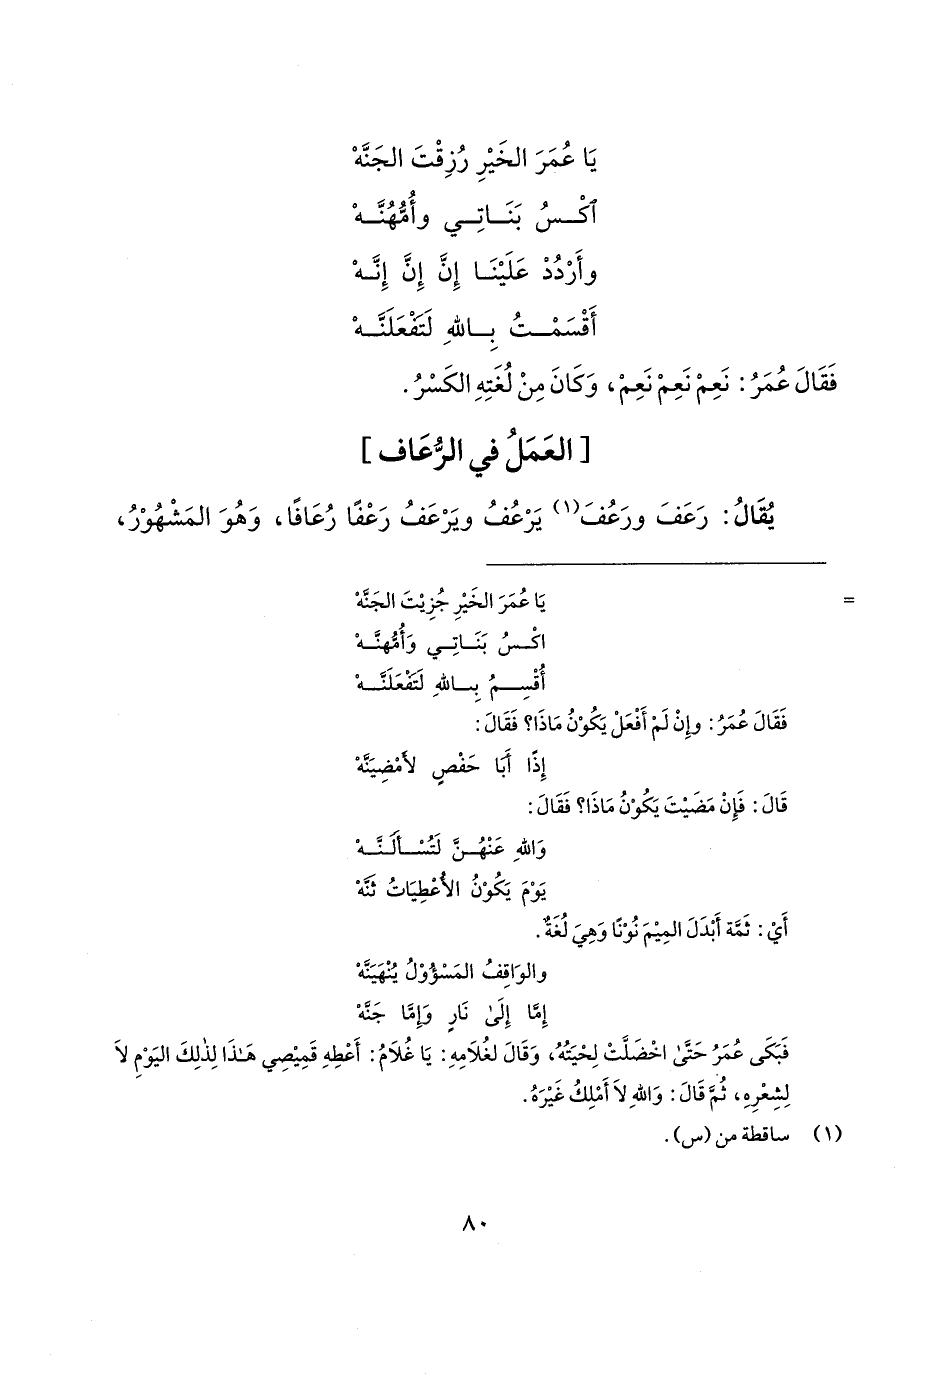 يَا عُمَرَ الخَيْرِ رُزِقْتَ الجَنَّهْ
ٱكْـسُ بَنَـاتِـي وأُمُّهُنَّـهْ
وأَرْدُدْ عَلَيْنَـا إِنَّ إِنَّ إِنَّـهْ
أَقْسَمْـتُ بِـاللهِ لَتَفْعَلَنَّـهْ
فَقَالَ عُمَرُ: نَعِمْ نَعِمْ نَعِمْ، وَكَانَ مِنْ لُغَتِهِ الكَسْرُ.
[العَمَلُ في الرُّعَاف]
يُقَالُ: رَعَفَ ورَعُفَ(١) يَرْعُفُ ويَرْعَفُ رَعْفًا رُعَافًا، وَهُوَ المَشْهُوْرُ،
= يَا عُمَرَ الخَيْرِ جُزِيْتَ الجَنَّهْ
اكْـسُ بَنَـاتِـي وَأُمُّهنَّـهْ
أُقْسِـمُ بِـاللهِ لَتَفْعَلَنَّـهْ
فَقَالَ عُمَرُ: وإِنْ لَمْ أَفْعَلْ يَكُوْنُ مَاذَا؟ فَقَالَ:
إِذًا أَبَا حَفْصٍ لأَمْضِيَنَّهْ
قَالَ: فَإِنْ مَضَيْتَ يَكُوْنُ مَاذَا؟ فَقَالَ:
وَاللهِ عَنْهُـنَّ لَتُسْـأَلَـنَّـهْ
يَوْمَ يَكُوْنُ الأُعْطِيَاتُ ثَنَّهْ
أَيْ: ثَمَّة أَبْدَلَ المِيْمَ نُوْنًا وَهِيَ لُغَةٌ.
والوَاقِفُ المَسْؤُوْلُ يُنْهَيَنَّهْ
إِمَّا إِلَىٰ نَارٍ وَإِمَّا جَنَّهْ
فَبَكَى عُمَرُ حَتَّىٰ اخْضَلَّتْ لِحْيَتُهُ، وَقَالَ لِغُلَامِهِ: يَا غُلَامُ: أَعْطِهِ قَمِيْصِي هَـٰذَا لِذٰلِكَ اليَوْمِ لاَ
لِشِعْرِهِ، ثُمَّ قَالَ: وَاللهِ لاَ أَمْلِكُ غَيْرَهُ.
(١) ساقطة من (س).
٨٠